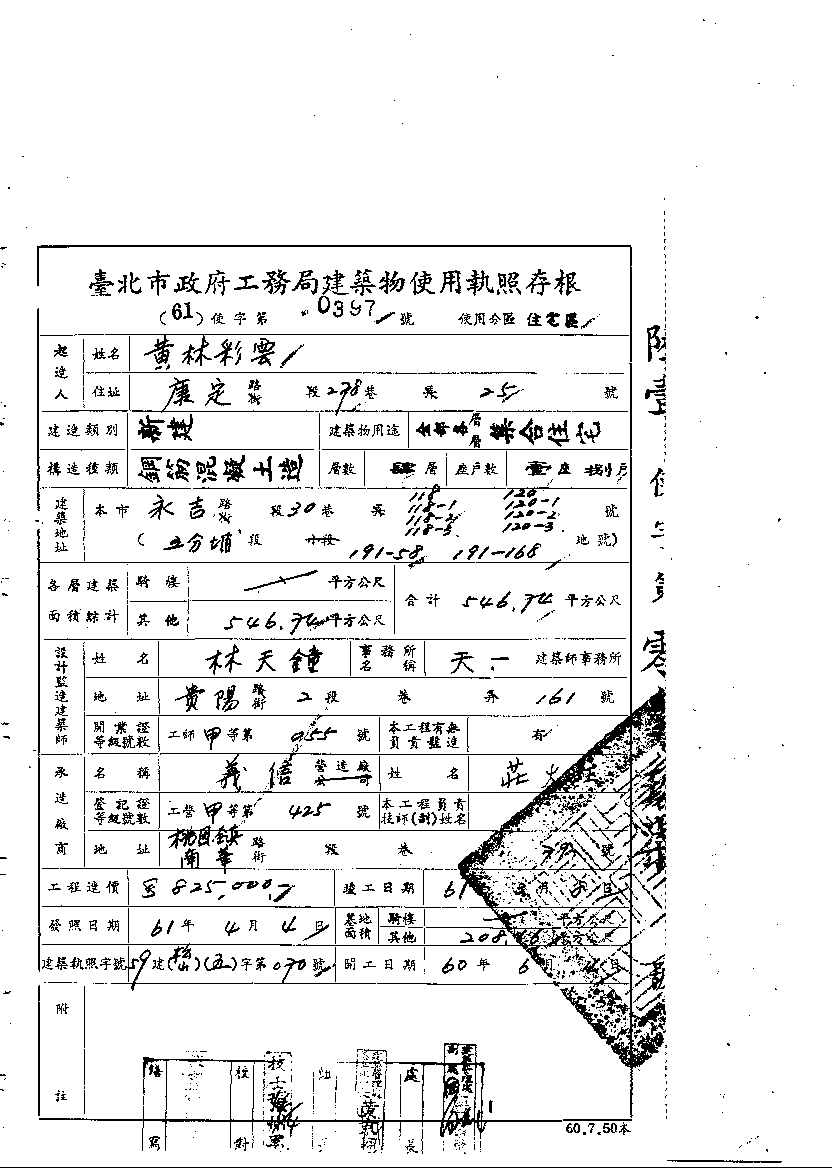 臺北市政府工務局建築物使用執照存根
(61)使字第 0397 號 使用分區 住宅區
起造人 姓名 黃林彩雲
住址 康定 路街 段 278 巷 弄 25 號
建造類別 新建 建築物用途 全部各層 集合住宅
構造種類 鋼筋混凝土造 層數 肆層 座戶數 壹座 捌戶
建築地址 本市 永吉 路街 段 30 巷 弄 118 118-1 118-2 118-3 120 120-1 120-2 120-3 號
(五分埔 段 小段 191-58 191-168 地號)
各層建築面積綜計 騎樓 平方公尺 合計 546.74 平方公尺
其他 546.74 平方公尺
設計監造建築師 姓名 林天鐘 事務所名稱 天一 建築師事務所
地址 貴陽 路街 2 段 巷 弄 161 號
開業證等級號數 工師甲等第 055 號 本工程有無負責監造 有
承造廠商 名稱 義信 營造廠公司 姓名 莊
登記證等級號數 工營甲等第 425 號 本工程負責技師(副)姓名
地址 桃園鎮南華 路街 段 巷 號
工程造價 825,000 竣工日期 61
發照日期 61 年 4 月 4 日 基地面積 騎樓 平方公尺
其他 208. 平方公尺
建築執照字號 59 建(松)(五)字第 070 號 開工日期 60 年 6 月 日
附註
繕寫 校對 技士 組 處長
60.7.50本
陸壹 使字第 零